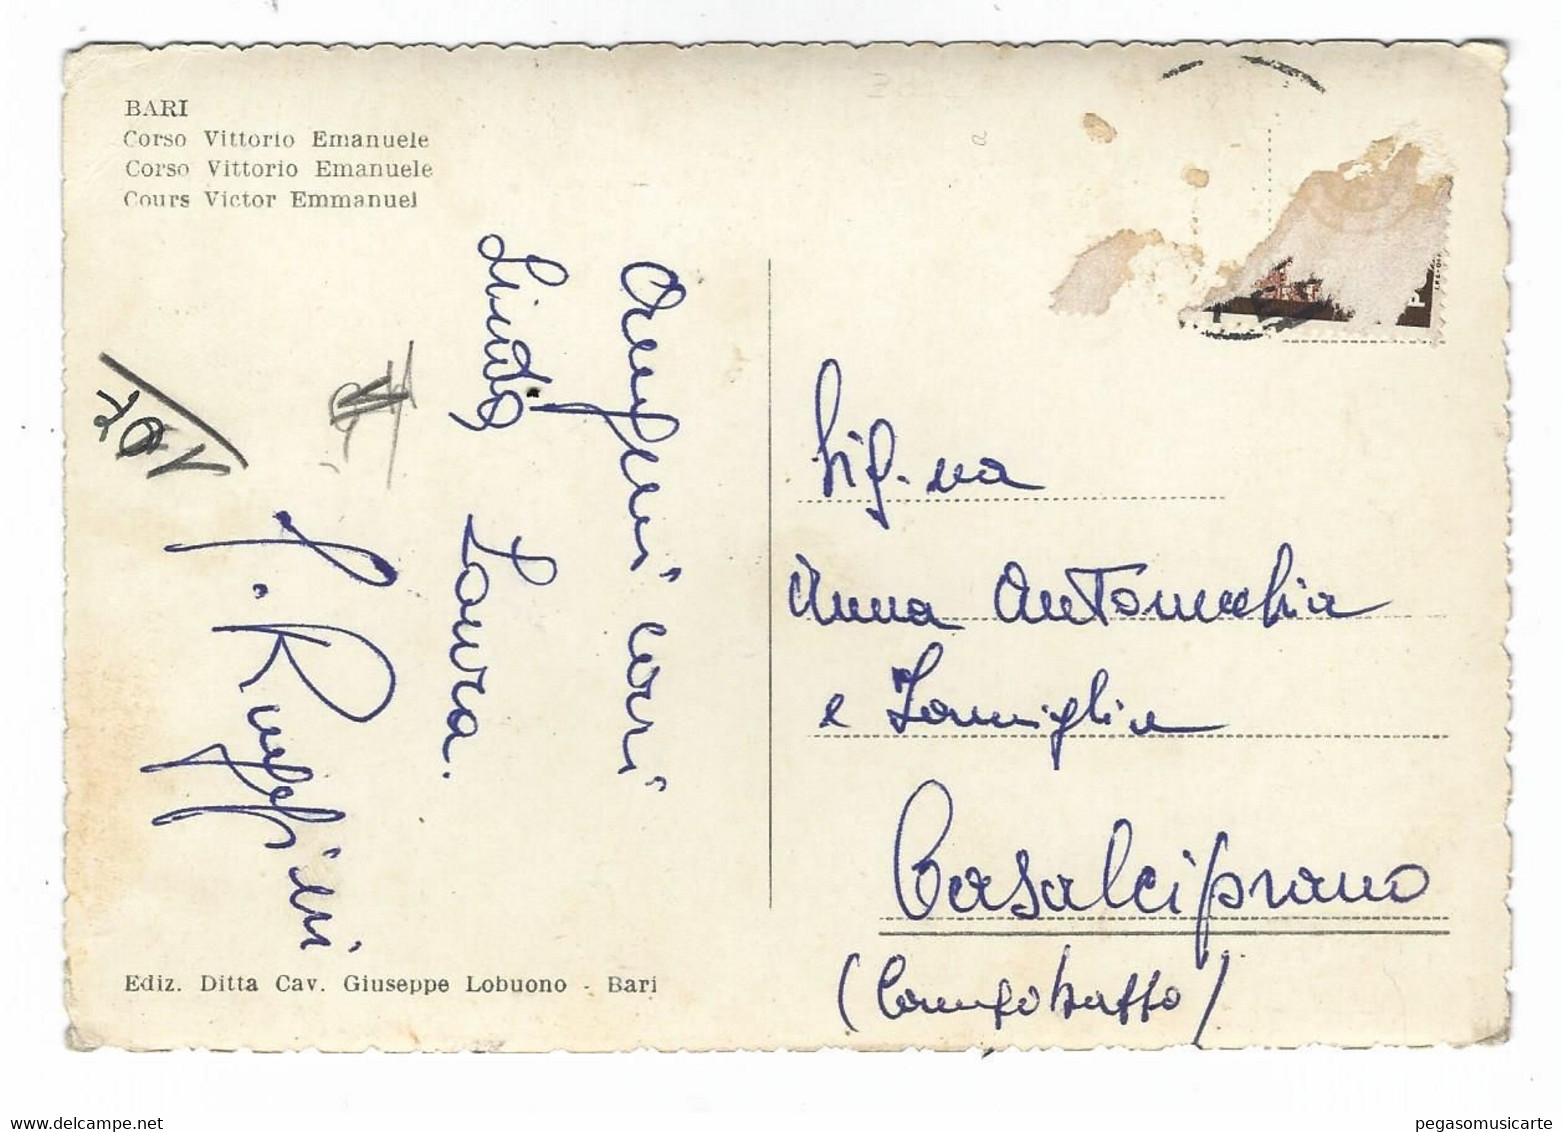 BARI
Corso Vittorio Emanuele
Corso Vittorio Emanuele
Cours Victor Emmanuel
Auguri cari
Laura.
Ruggini
Sig.na
Anna Antonecchia
e Famiglia
Casalciprano
(Campobasso)
Ediz. Ditta Cav. Giuseppe Lobuono - Bari
pegasomusicarte